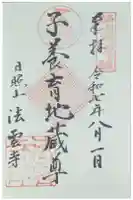 奉拝
令和七年八月一日
子養育地蔵尊
日照山
法雲寺